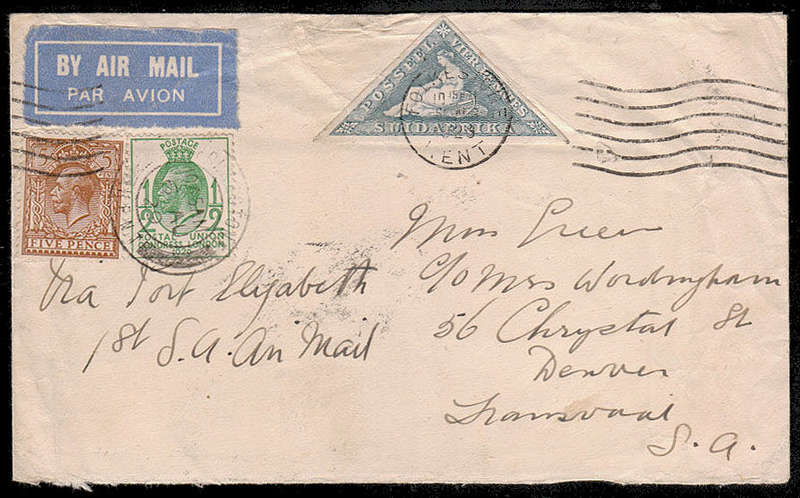 BY AIR MAIL
PAR AVION
POSSEËL
VIER PENNIES
SUIDAFRIKA
FOLKESTONE
KENT
5 5
FIVE PENCE
POSTAGE
1/2 1/2
POSTAL UNION
CONGRESS LONDON
1929
Via Port Elizabeth
1st S.A. Air Mail
Miss Green
C/O Mrs Wordingham
56 Chrystal St
Denver
Transvaal
S.A.